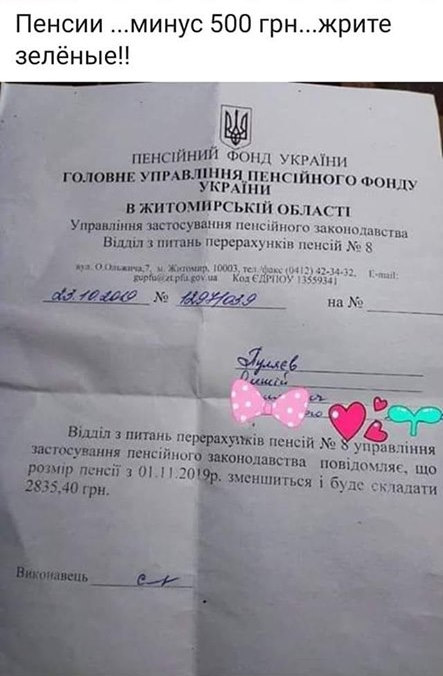 Пенсии ...минус 500 грн...жрите
зелёные!!
ПЕНСІЙНИЙ ФОНД УКРАЇНИ
ГОЛОВНЕ УПРАВЛІННЯ ПЕНСІЙНОГО ФОНДУ
УКРАЇНИ
В ЖИТОМИРСЬКІЙ ОБЛАСТІ
Управління застосування пенсійного законодавства
Відділ з питань перерахунків пенсій № 8
вул. О.Ольжича,7, м. Житомир, 10003, тел./факс (0412) 42-34-32, E-mail:
gupfu@zt.pfu.gov.ua Код ЄДРПОУ 13559341
23.10.2019 № 1297/039 на №
Пуляєв
Відділ з питань перерахунків пенсій № 8 управління
застосування пенсійного законодавства повідомляє, що
розмір пенсії з 01.11.2019р. зменшиться і буде складати
2835,40 грн.
Виконавець